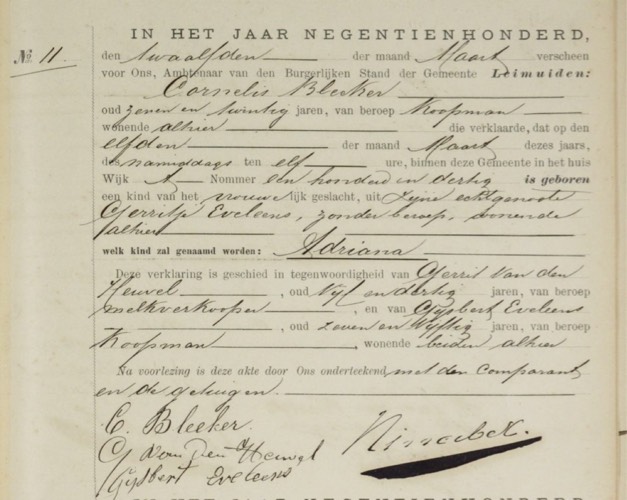 IN HET JAAR NEGENTIENHONDERD,
№ 11.
den twaalfden der maand Maart verscheen
voor Ons, Ambtenaar van den Burgerlijken Stand der Gemeente Leimuiden:
Cornelis Bleeker
oud zeven en twintig jaren, van beroep Koopman
wonende alhier die verklaarde, dat op den
elfden der maand Maart dezes jaars,
des namiddags ten elf ure, binnen deze Gemeente in het huis
Wijk A Nommer een honderd en dertig is geboren
een kind van het vrouwelijk geslacht, uit zijne echtgenoote
Gerritje Eveleens, zonder beroep, wonende
alhier
welk kind zal genaamd worden: Adriana
Deze verklaring is geschied in tegenwoordigheid van Gerrit van den
Heuvel, oud Vijf en dertig jaren, van beroep
melkverkooper, en van Gijsbert Eveleens
, oud zeven en Vijftig jaren, van beroep
Koopman, wonende beiden alhier
Na voorlezing is deze akte door Ons onderteekend, met den Comparant
en de getuigen.
C. Bleeker.
G van Den Heuvel
Gijsbert Eveleens
IN HET JAAR NEGENTIENHONDERD